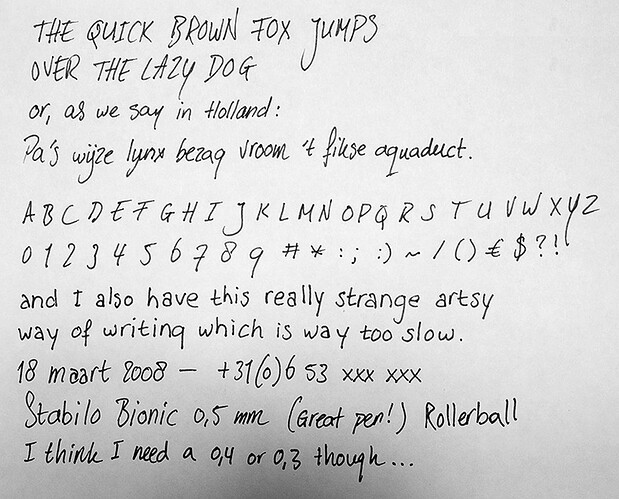 THE QUICK BROWN FOX JUMPS
OVER THE LAZY DOG
or, as we say in Holland:
Pa's wijze lynx bezag vroom 't fikse aquaduct.
A B C D E F G H I J K L M N O P Q R S T U V W X Y Z
0 1 2 3 4 5 6 7 8 9 # * : ; :) ~ / () € $ ? !
and I also have this really strange artsy
way of writing which is way too slow.
18 maart 2008 – +31(0)6 53 xxx xxx
Stabilo Bionic 0,5 mm (Great pen!) Rollerball
I think I need a 0,4 or 0,3 though...